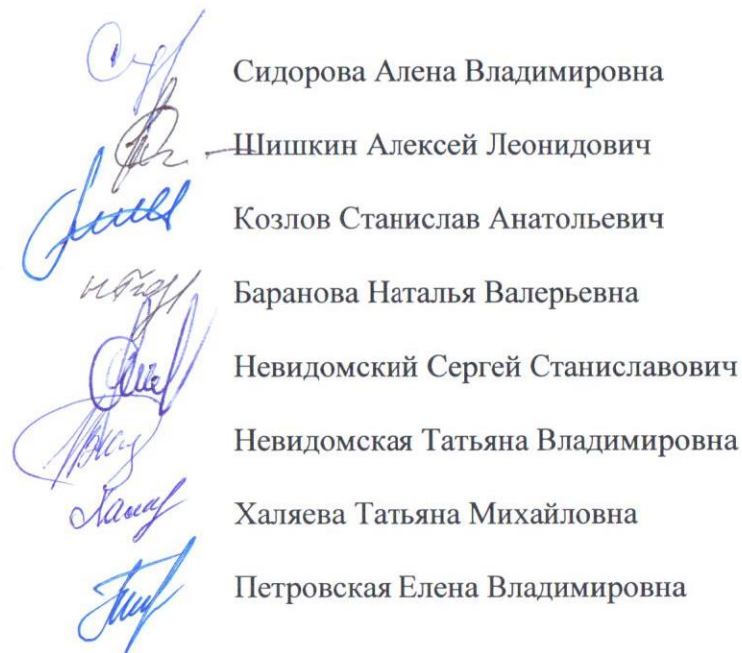 Сидорова Алена Владимировна
Шишкин Алексей Леонидович
Козлов Станислав Анатольевич
Баранова Наталья Валерьевна
Невидомский Сергей Станиславович
Невидомская Татьяна Владимировна
Халяева Татьяна Михайловна
Петровская Елена Владимировна